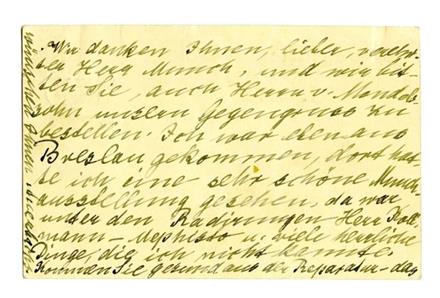 Wir danken Ihnen, lieber, verehr-
ter Herr Munch, und wir bit-
ten Sie, auch Herrn v. Mendels-
sohn unsern Gegengruss zu
bestellen. Ich war eben aus
Breslau gekommen, dort hat-
te ich eine sehr schöne Munch-
ausstellung gesehen, da war
unter den Radjrungen Herr Holl-
mann - Mephisto u. viele herrliche
Dinge, die ich nicht kannte.
Kommen Sie gesund aus der Reparatur - das